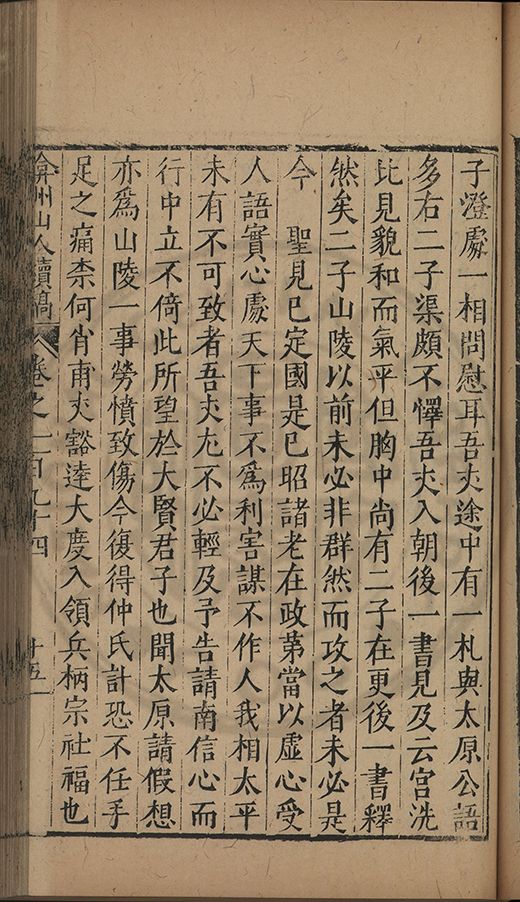 子澄處一相問慰耳吾丈途中有一札與太原公語
多右二子渠頗不懌吾丈入朝後一書見及云宮洗
比見貌和而氣平但胸中尚有二子在更後一書釋
然矣二子山陵以前未必非群然而攻之者未必是
今　聖見已定國是已昭諸老在政第當以虛心受
人語實心處天下事不為利害謀不作人我相太平
未有不可致者吾丈尢不必輕及予告請南信心而
行中立不倚此所望於大賢君子也聞太原請假想
亦為山陵一事勞憤致傷今復得仲氏訃恐不任手
足之痛柰何肖甫丈豁達大度入領兵柄宗社福也
弇州山人續稿 卷之一百九十四 十五